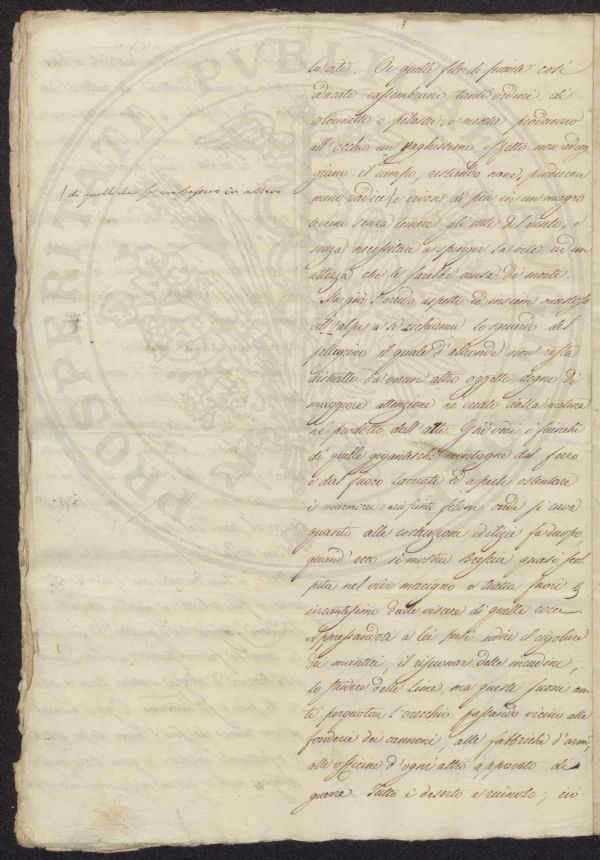 PROSPERITATI PVBLI
curate. Or quelle file di piante così
educate rassembrano tante sedute di
colonnette o pilastri, e mentre producono
all'occhio un vaghissimo effetto non aduggiano
il campo, restando nane, producono
meno radici / e vivon di più in un magro
/ di quelle che si crescessero in albero
terreno senza temere gli urti del vento, e
senza necessitare a spinger la vite ad un
altezza che le sarebbe causa di morte.
Ma già l'orrido aspetto ed insieme maestoso
dell'alpi a sé richiama lo sguardo del
pellegrino il quale d'altronde non resta
distratto da verun altro oggetto degno di
maggiore attenzione né creato dalla natura
né prodotto dall'arte. Già vedi i fianchi
di quelle gigantesche montagne dal ferro
e dal fuoco lacerate ed aperte ostentare
i marmorei variopinti filoni onde si cava
quanto alle costruzioni edilizie fa duopo,
quand'ecco si mostra Brescia quasi scolpita
nel vivo macigno o tratta fuori
incantesimo dalle viscere di quelle rocce.
Appressandoti a lei puoi udire il cigolare
dei mantici, il risuonar delle incudini,
lo stridere delle lime, ma questi suoni
percuotere l'orecchio passando vicino alle
fonderie dei cannoni, alle fabbriche d'armi,
alle officine d'ogni altro apparato di
guerra. Tutto è deserto e ruinoso; ivi